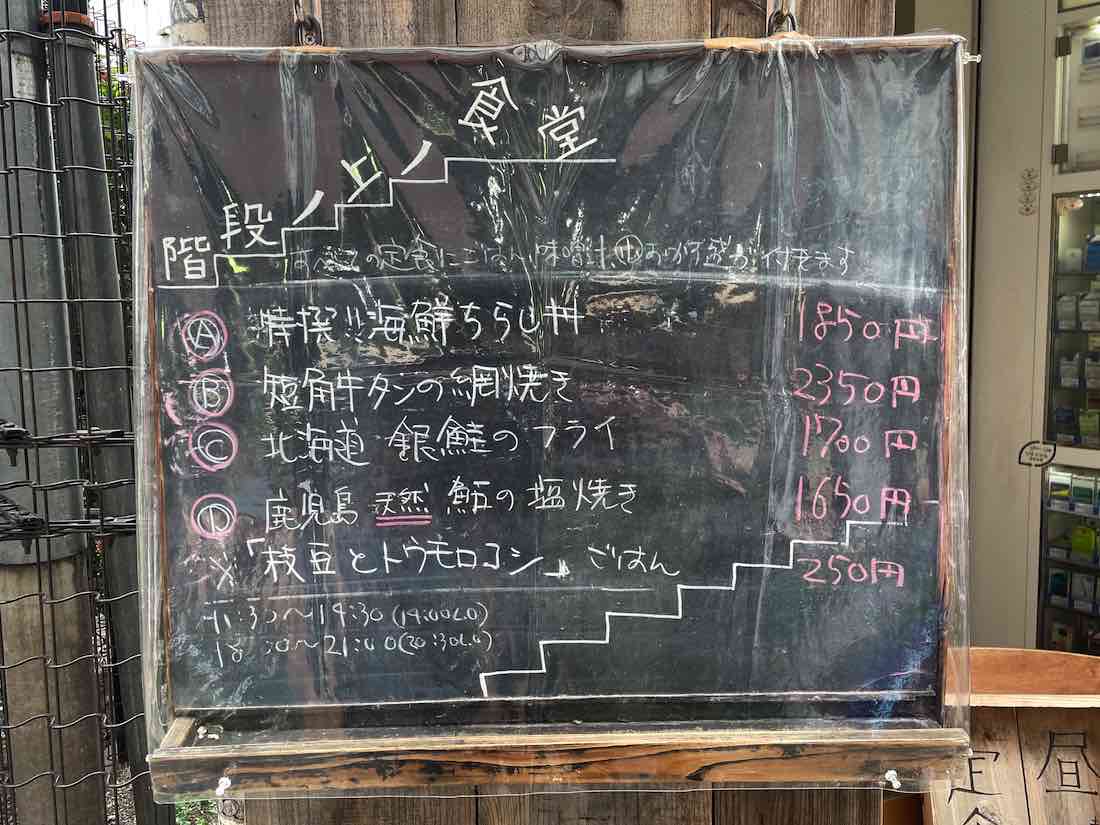 階段ノ上ノ食堂
すべての定食にごはん 味噌汁 小おかずが付きます
Ⓐ 特撰!!海鮮ちらし丼 1850円
Ⓑ 短角牛タンの網焼き 2350円
Ⓒ 北海道 銀鮭のフライ 1700円
Ⓓ 鹿児島 天然 鰤の塩焼き 1650円
※「枝豆とトウモロコシ」ごはん 250円
:30〜14:30(14:00L.O)
18:00〜21:00(20:30L.O)
昼
定食